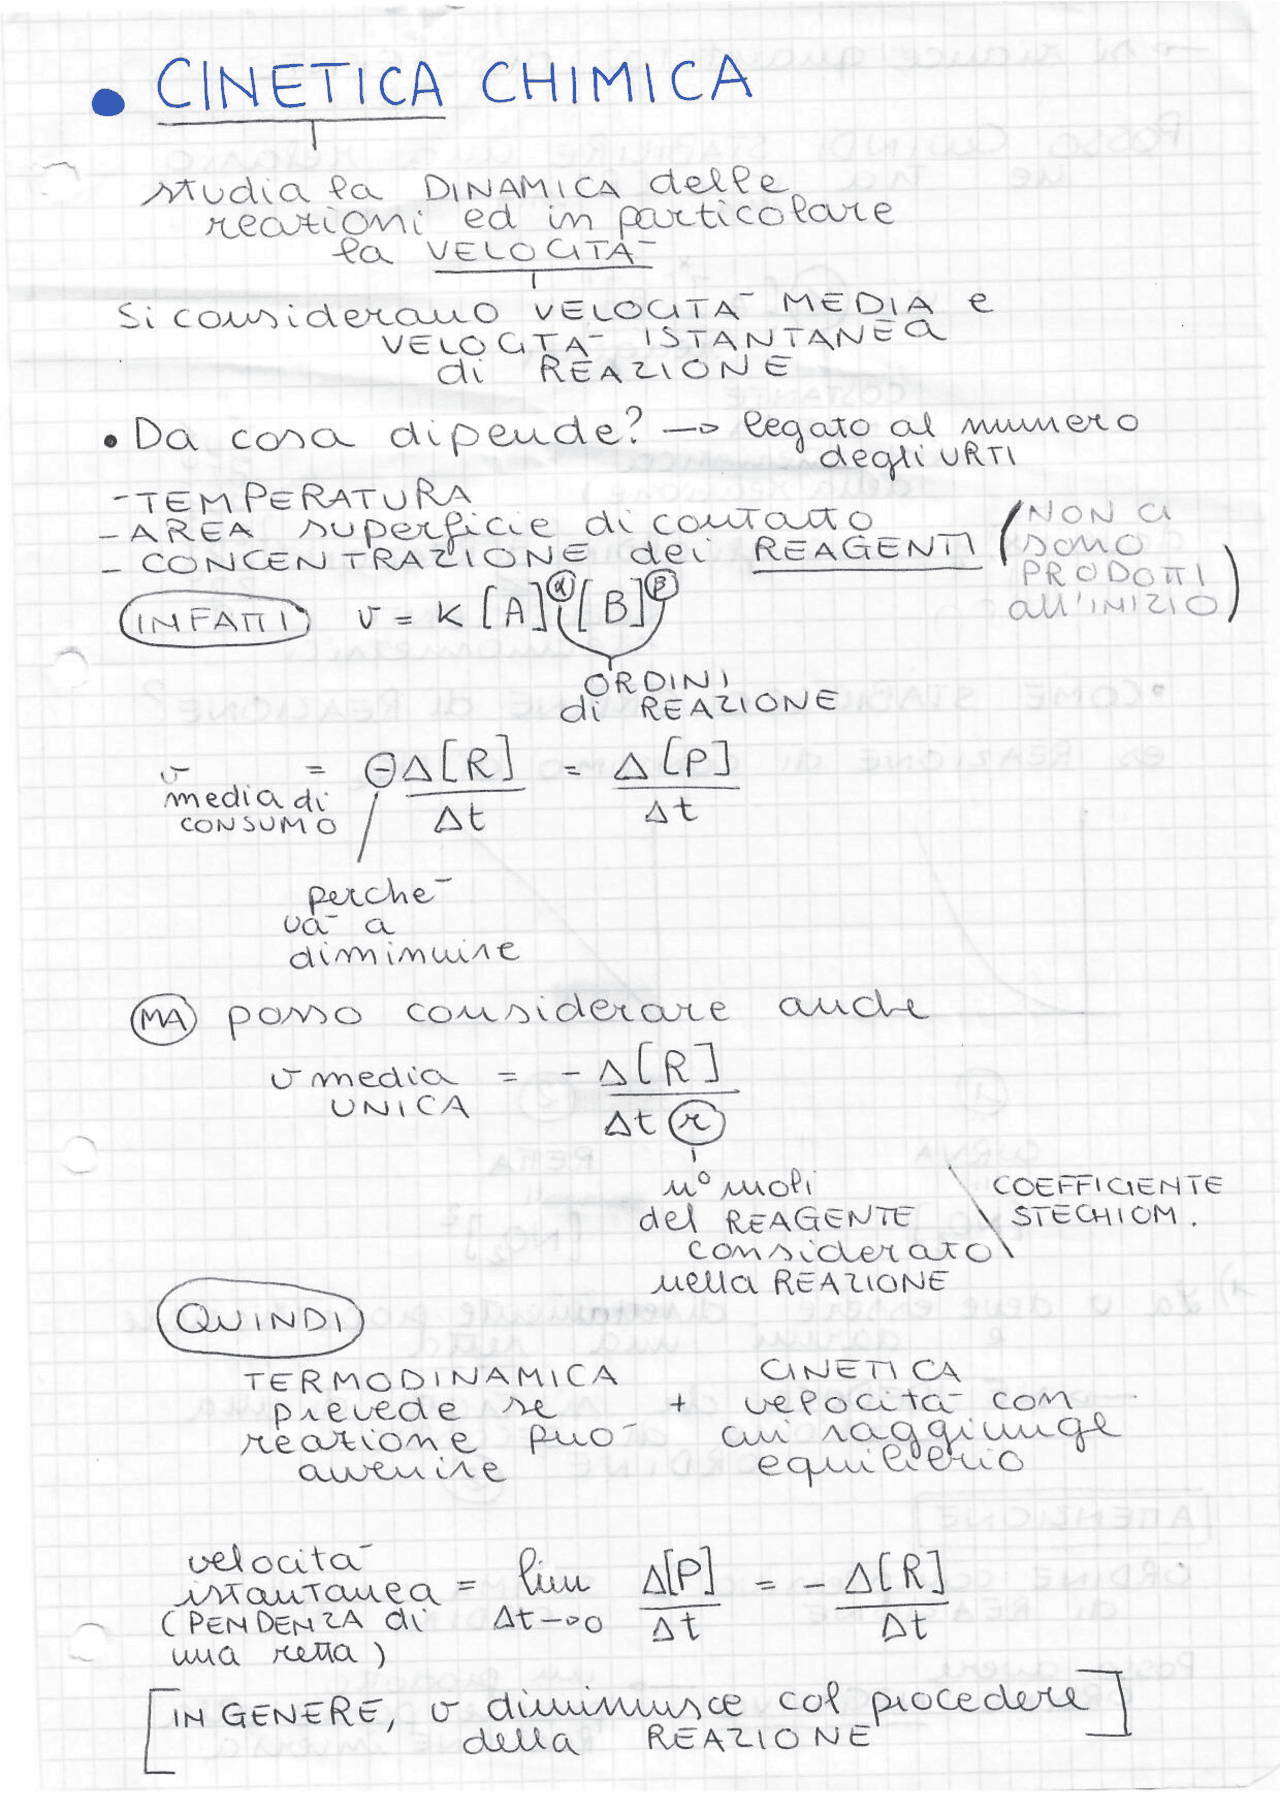 • CINETICA CHIMICA
studia la DINAMICA delle
reazioni ed in particolare
la VELOCITÀ
Si considerano VELOCITÀ MEDIA e
VELOCITÀ ISTANTANEA
di REAZIONE
• Da cosa dipende? → legato al numero
degli URTI
- TEMPERATURA
- AREA superficie di contatto
- CONCENTRAZIONE dei REAGENTI (NON CI
sono
PRODOTTI
all'INIZIO)
INFATTI v = K [A]^α [B]^β
ORDINI
di REAZIONE
v media di CONSUMO = - Δ[R]/Δt = Δ[P]/Δt
perchè
và a
diminuire
MA posso considerare anche
v media UNICA = - Δ[R]/Δt r
n° moli
del REAGENTE
considerato
nella REAZIONE
COEFFICIENTE
STECHIOM.
QUINDI
TERMODINAMICA
prevede se
reazione può
avvenire
+
CINETICA
velocità con
cui raggiunge
equilibrio
velocità
istantanea = lim Δt→0 Δ[P]/Δt = - Δ[R]/Δt
(PENDENZA di
una retta)
[IN GENERE, v diminuisce col procedere
della REAZIONE]